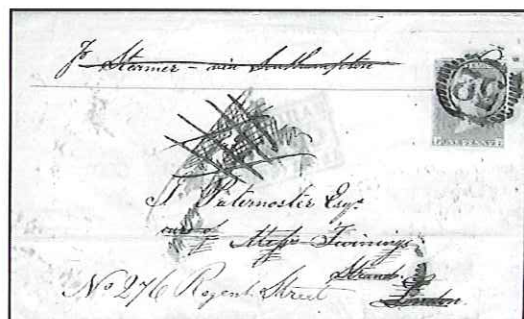 pr Steamer – via Southampton
J Paternoster Esqr
care of Messrs Twinings
Strand
London
No 276 Regent Street